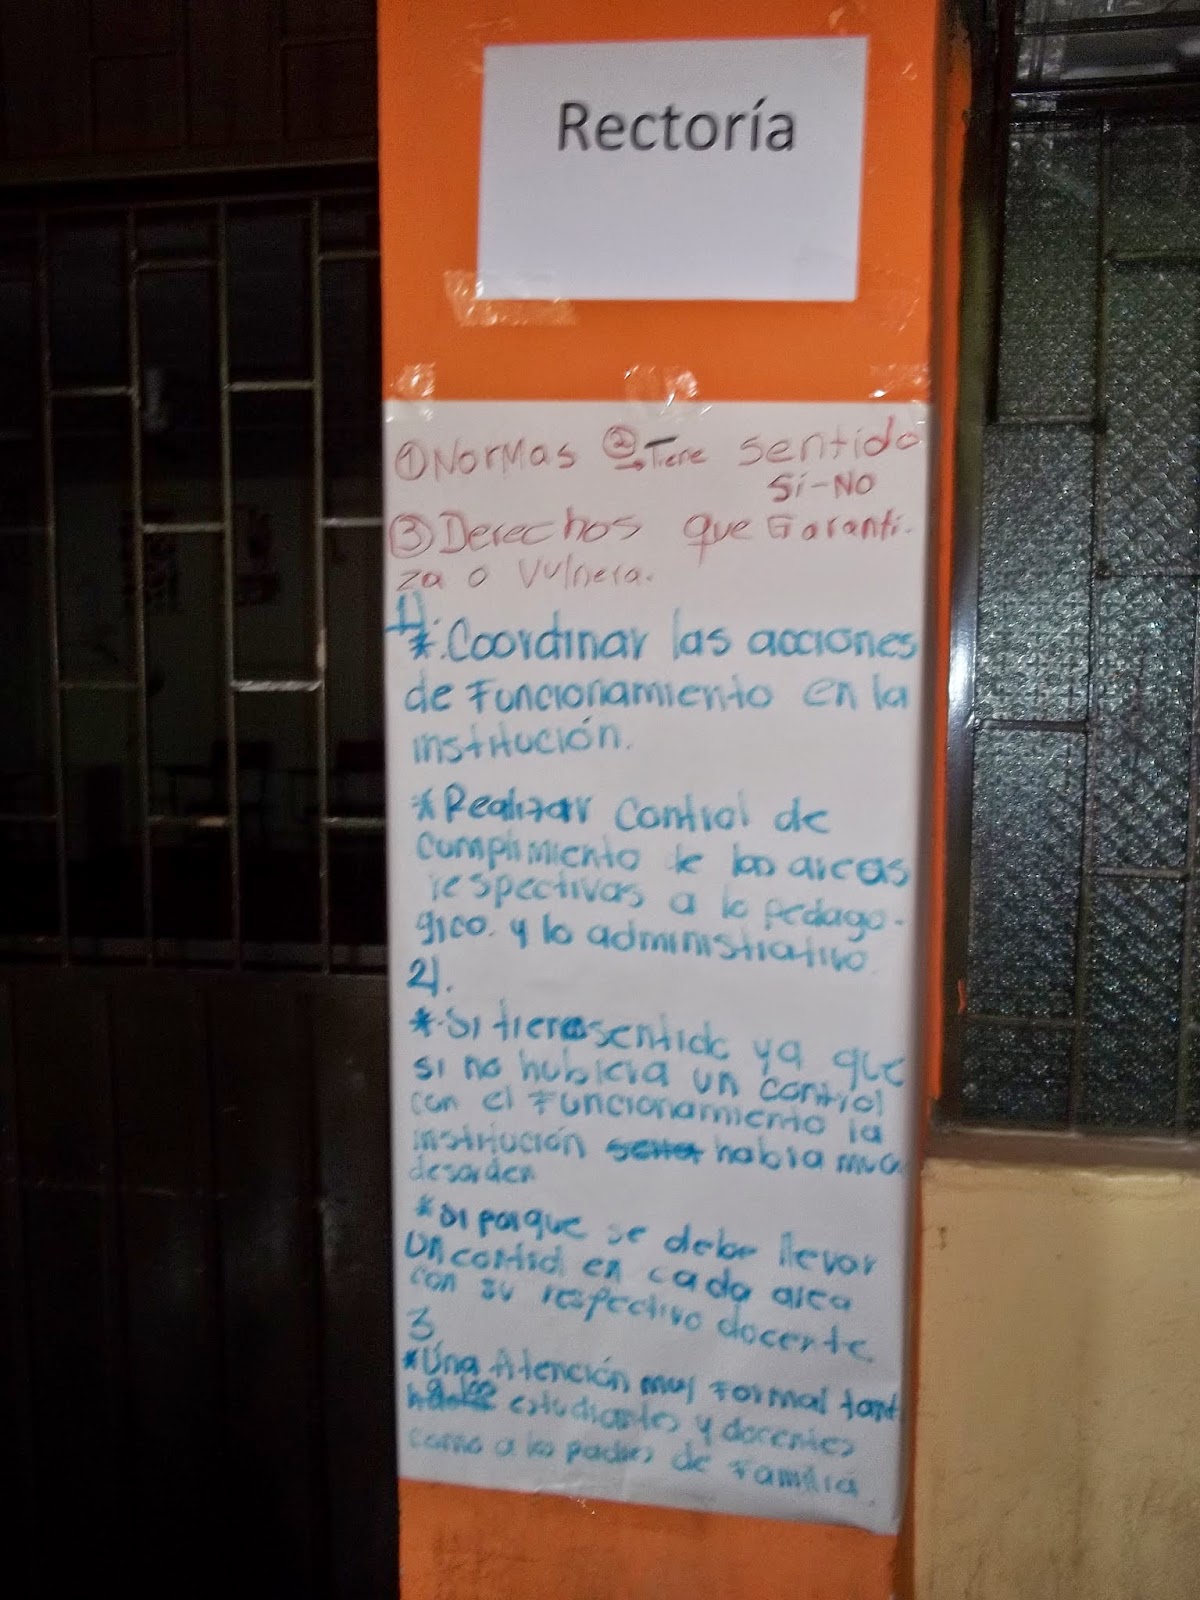 Rectoría
①Normas ②→Tiene sentido
Si-No
③Derechos que Garanti-
za o Vulnera.
1).
*.Coordinar las acciones
de Funcionamiento en la
institución.
*Realizar control de
cumplimiento de las areas
respectivas a lo pedago-
gico. y lo administrativo.
2).
*.Si tiene sentido ya que
si no hubiera un control
con el Funcionamiento la
institución habia muc
desorden
*Si porque se debe llevar
un control en cada area
con su respectivo docente
3
*Una Atención muy Formal tant
a los estudiantes y docentes
como a los padres de Familia.